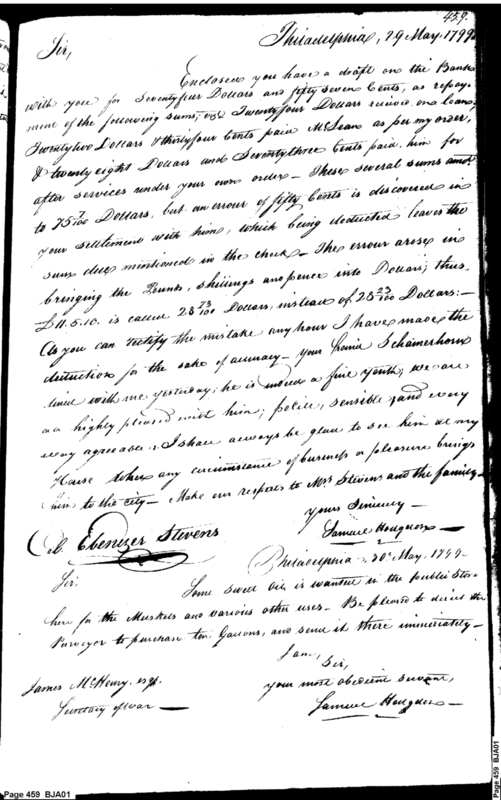 459.
Philadelphia, 29 May. 1799
Sir,
Enclosed you have a draft on the Bank
with you for Seventyfour Dollars and fifty seven Cents, as repay-
ment of the following sums, viz Twentyfour Dollars recived on loan,
Twentytwo Dollars & thirtyfour Cents paid McLean as per my order,
& twenty eight Dollars and Seventythree Cents paid him for
after services under your own order - These several sums amot
to 75 7/100 Dollars, but an errour of fifty Cents is discovered in
your settlement with him, which being deducted leaves the
sum due mentioned in the check - The errour arose in
bringing the Pounds, shillings and pence into Dollars; thus,
£11.5.10. is called 28 73/100 Dollars, instead of 28 23/100 Dollars:-
As you can rectify the mistake any hour I have made the
deduction for the sake of accuracy - Your friend Schamerhorn
dined with me yesterday; he is indeed a fine youth; we are
all highly pleased with him; polite, sensible and every
way agreeable. I shall always be glad to see him at my
House when any circumstance of business or pleasure brings
him to the city - Make our respects to Mrs Stevens and the family -
Yours Sincerely -
Samuel Hodgdon -
Col. Ebenezer Stevens
Philadelphia 30th May. 1799-
Sir.
Some Sweet Oil is wanted in the public Store
here for the Muskets and various other uses - Be pleased to direct the
Purveyor to purchase ten Gallons, and send it there immediately -
I am,
Sir,
James McHenry. esqr.
your most obedient servant,
Secretary of war -
Samuel Hodgdon -
Page 459 BJA01
Page 459 BJA01